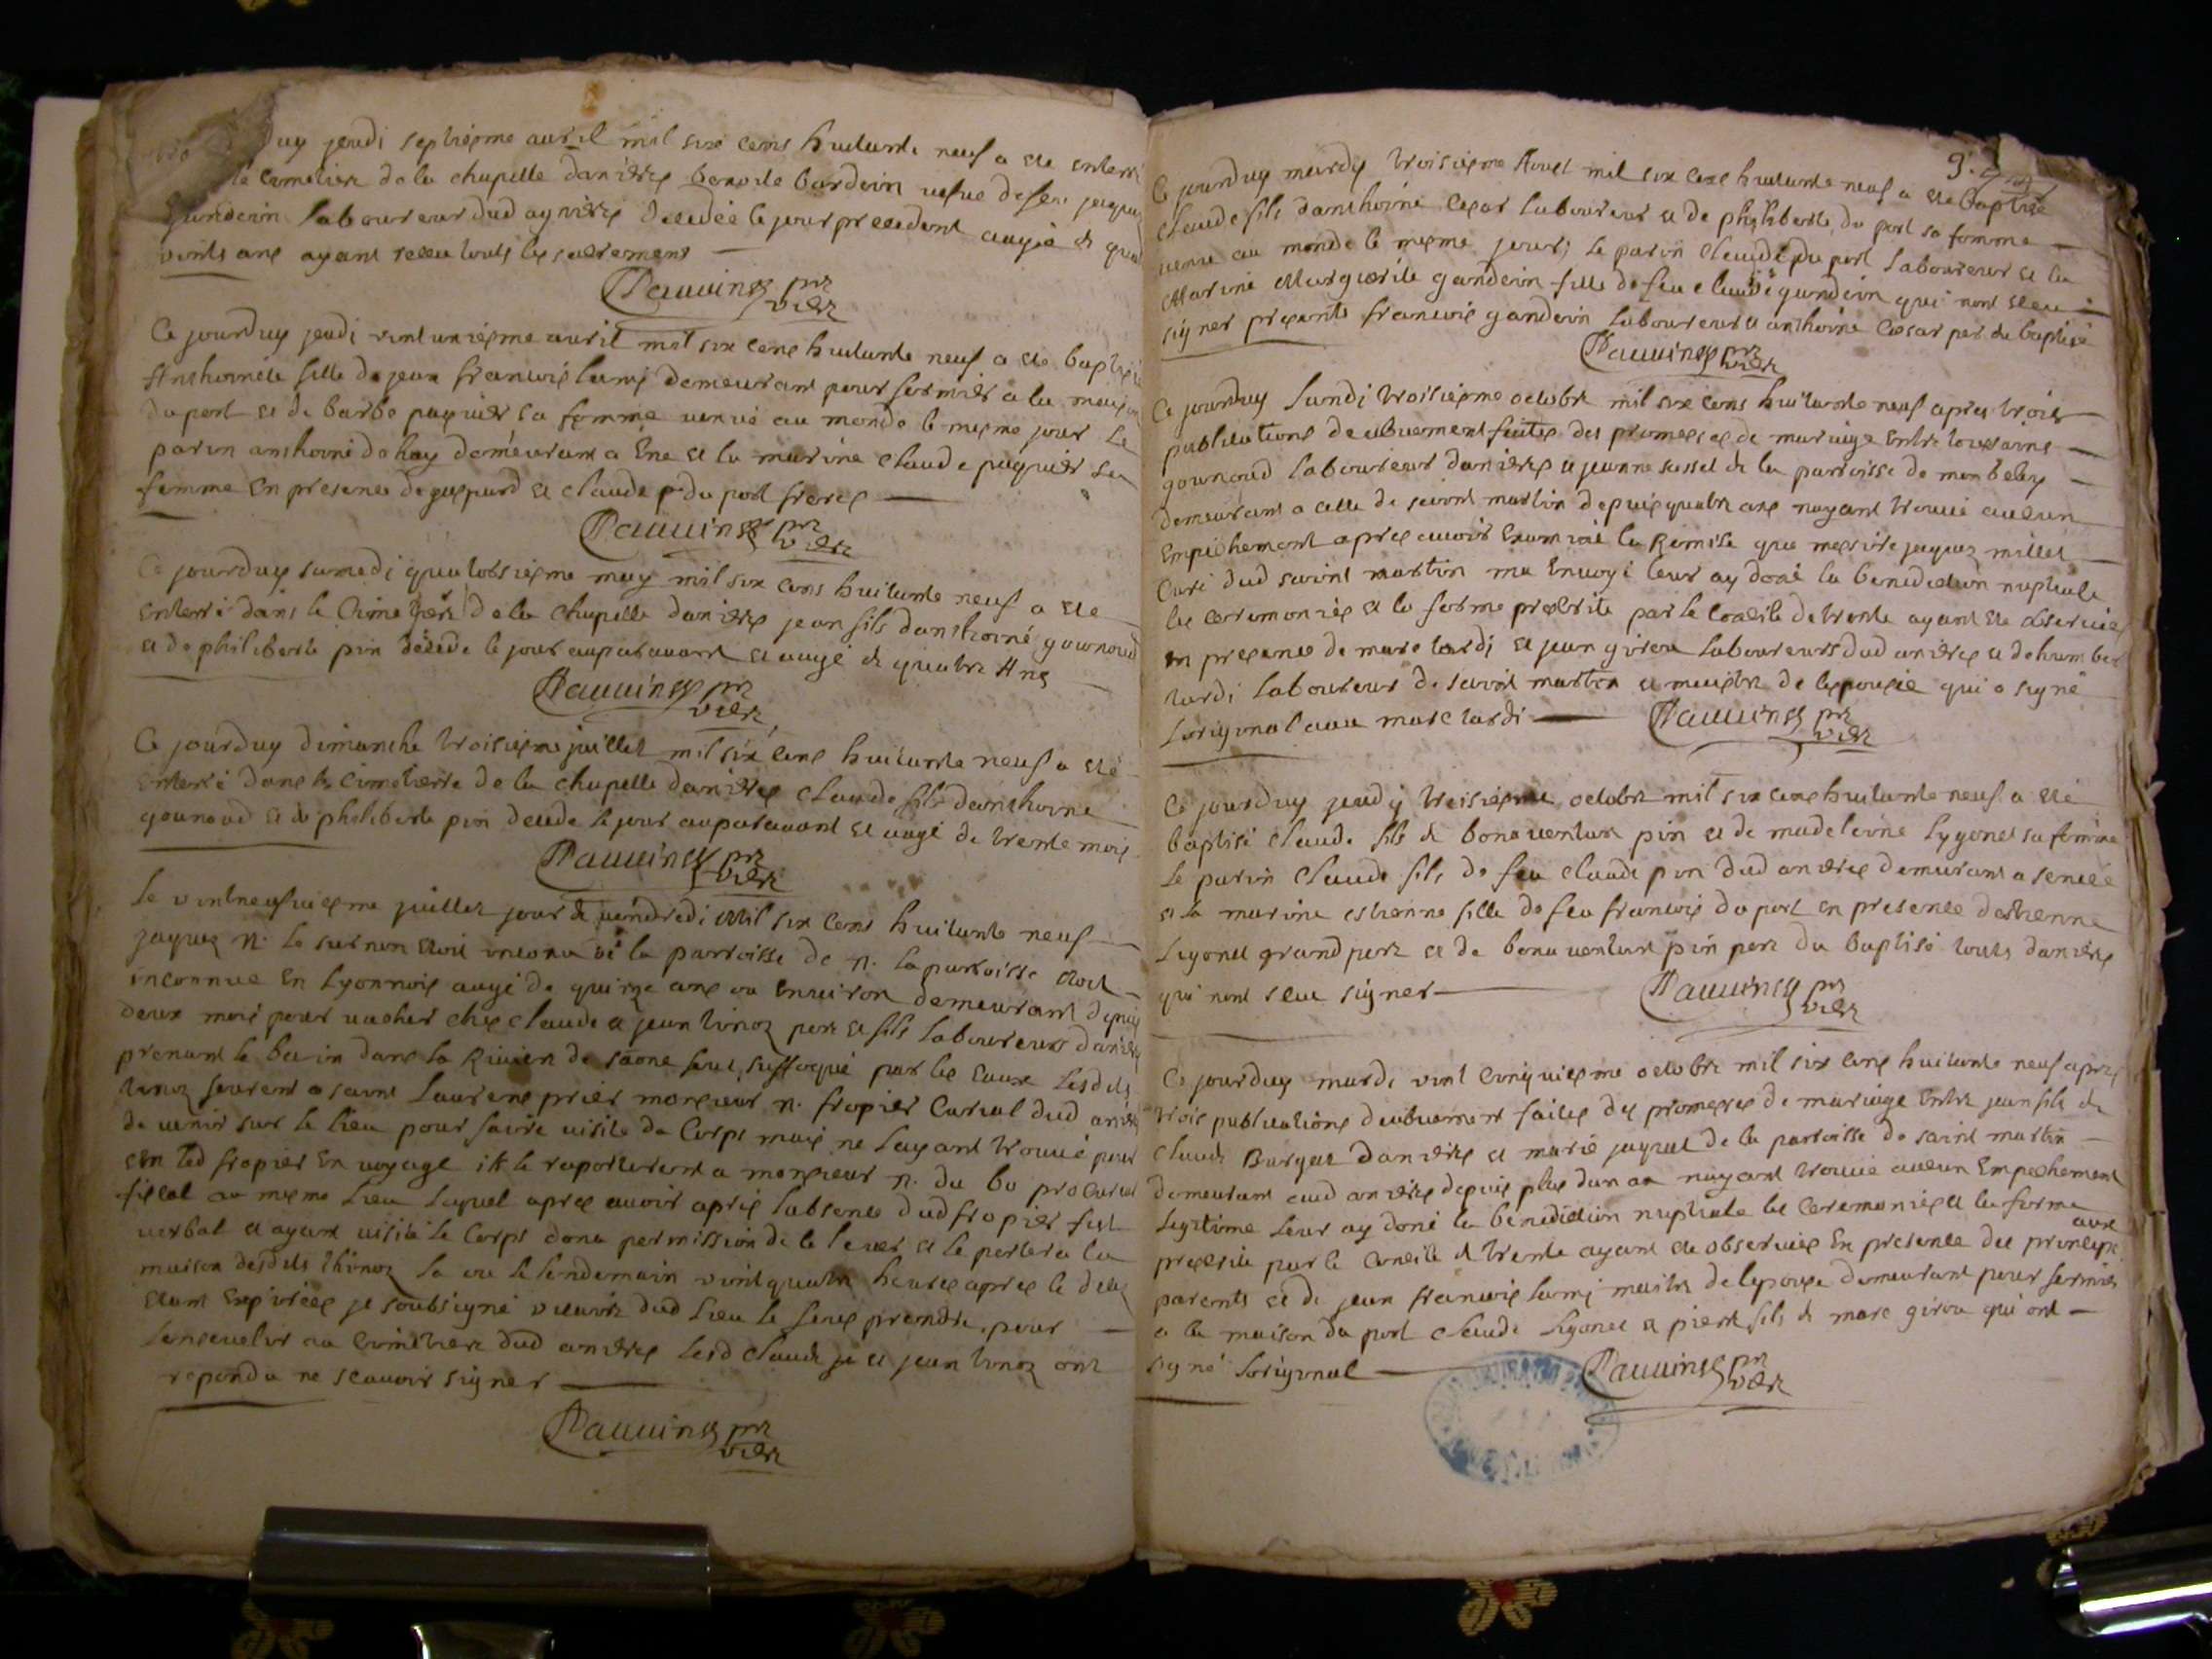 duy jeudi septiesme avril mil six cens huitante neuf a ete enterré
le cimetiere de la chapelle danieres benoite bardoin vefve de feu jaques
gandoin laboureur dud anieres decedée le jour precedent aagée de quatre
vints ans ayant receu touts les sacrements
Ce jourduy jeudi vint uniesme avril mil six cens huitante neuf a ete baptisée
Anthoinete fille de jean francois lamy demeurant pour fermier a la maison
du port et de barbe paquier sa femme venue au monde le mesme jour Le
parin anthoine de hay demeurant a Ene et la marine claude paquier sa
femme En presence de gaspard et claude du port freres
Ce jourduy samedi quatorsiesme may mil six cens huitante neuf a ete
Enterré dans le Cimetiere de la chapelle danieres jean fils danthoine gounoud
et de philiberte pin decede le jour auparavant et aagé de quatre Ans
Ce jourduy dimanche troisiesme juillet mil six cens huitante neuf a eté
enterré dans le cimetierre de la chapelle danieres claude fils danthoine
gounoud et de philiberte pin decede le jour auparavant et aagé de trente mois
Le vintneufviesme juillet jour de vendredi Mil six cens huitante neuf
jaques n. le surnon etoit inconu de la parroisse de n. la parroisse etoit
inconnue En Lyonnois aagé de quinze ans ou Environ demeurant depuis
deux mois pour vacher ches claude et jean tinoz pere et fils laboureurs danieres
prenant le bain dans la Riviere de saone feut suffoqué par les Eaux Lesdits
tinoz feurent a saint laurens prier monsieur n. fropier Curial dud anieres
de venir sur le lieu pour faire visite du Corps mais ne layant trouvé pour
etre led fropier En voyage ils le raporterent a monsieur n. du bo procureur
fiscal au mesme lieu lequel apres avoir apris labsence dud fropier fist
verbal et ayant visité le Corps dona permission de le lever et le porter a la
maison desdits thinoz la ou le lendemain vintquatre heures apres le deces
etant Expirées je soubsigné vicaire dud lieu le feus prendre pour
lensevelir au cimetiere dud anieres lesd claude et jean tinoz ont
repondu ne scavoir signer
9.
Ce jourduy mardy troisiesme Aoust mil six cens huitante neuf a ete baptisé
claude fils danthoine Cesar laboureur et de philiberte du port sa femme
venu au monde le mesme jour, le parin claude du port laboureur et la
Marine Marguerite gandoin fille de feu claude gandoin qui nont sceu
signer presents francois gandoin laboureur et anthoine Cesar pere du baptisé
Ce jourduy lundi troisiesme octobre mil six cens huitante neuf apres trois
publications deubuement faites des promesses de mariage entre toussaint
gounoud laboureur danieres et jeanne sasset de la parroisse de
demeurant a celle de saint martin depuis quatre ans nayant trouvé aucun
Empechement apres avoir Examiné la Remise que messire jaques millet
Curé dud saint martin ma Envoyé leur ay doné la benediction nuptiale
les ceremonies et la forme prescrite par le concile de trente ayant ete observées
en presence de marc tardi et jean girou laboureurs dud anieres et de humbert
tardi laboureur de saint martin et maistre de lespousée qui a signé
loriginal avec marc tardi
Ce jourduy jeudy treisiesme octobre mil six cens huitante neuf a eté
baptisé claude fils de bonaventure pin et de madeleine lygonet sa femme
le parin claude fils de feu claude pin dud anieres demurant a
et la marine estienne fille de feu francois du port en presence destienne
Ligonet grand pere et de bonaventure pin pere du baptisé touts danieres
qui nont sceu signer
Ce jourduy mardi vint cinquiesme octobre mil six cens huitante neuf apres
trois publications deubuement faites des promesses de mariage Entre jean fils de
claude Burgat danieres et marie jaquet de la parroisse de saint martin
demeurant aud anieres depuis plus dun an nayant trouvé aucun Empechement
legitime leur ay doné la benediction nuptiale les Ceremonies et la forme
prescrite par le Concile de trente ayant ete observées En presence des principaux
parents et de jean francois lamy maistre de lepouse demeurant pour fermier
a la maison du port claude lygonet et pierre fils de marc girou qui ont
signé loriginal